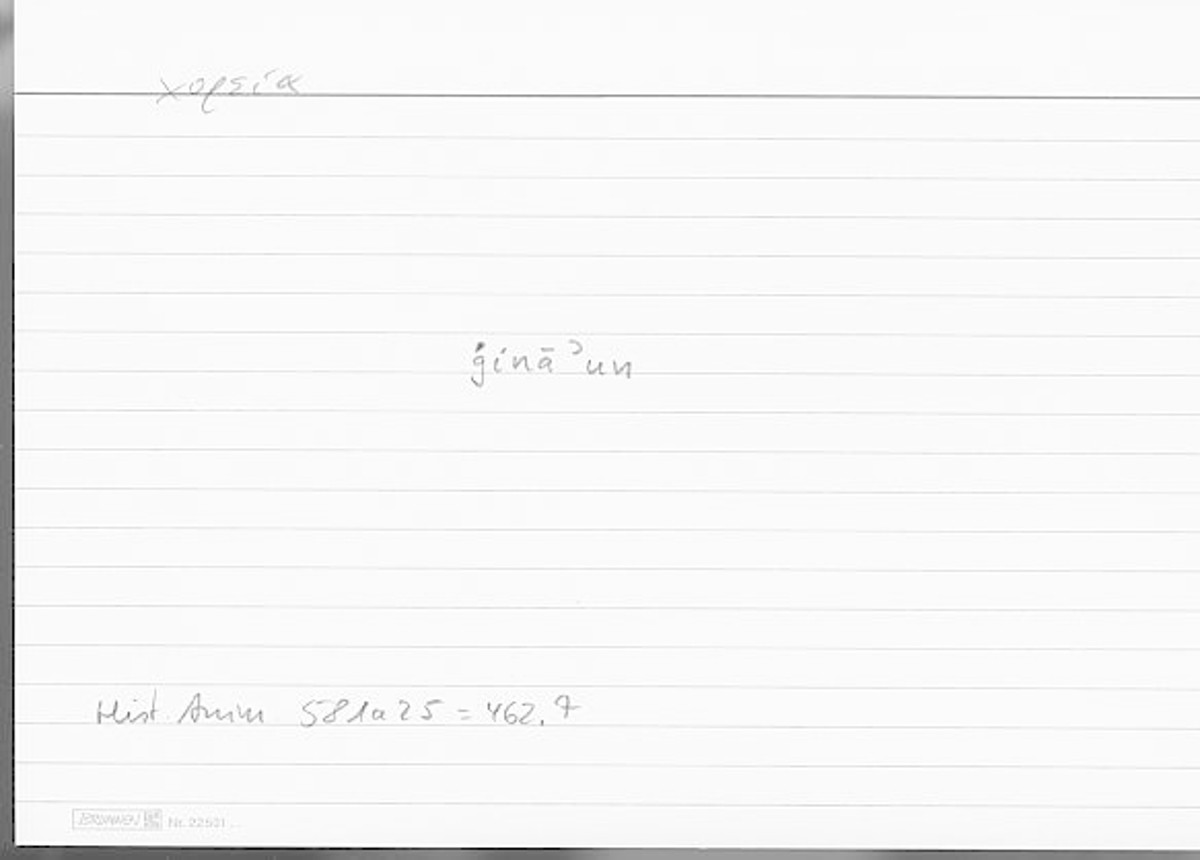 χορεία
ġināʾun
Hist. Anim 581a25 = 462,7
BRUNNEN Nr. 22501